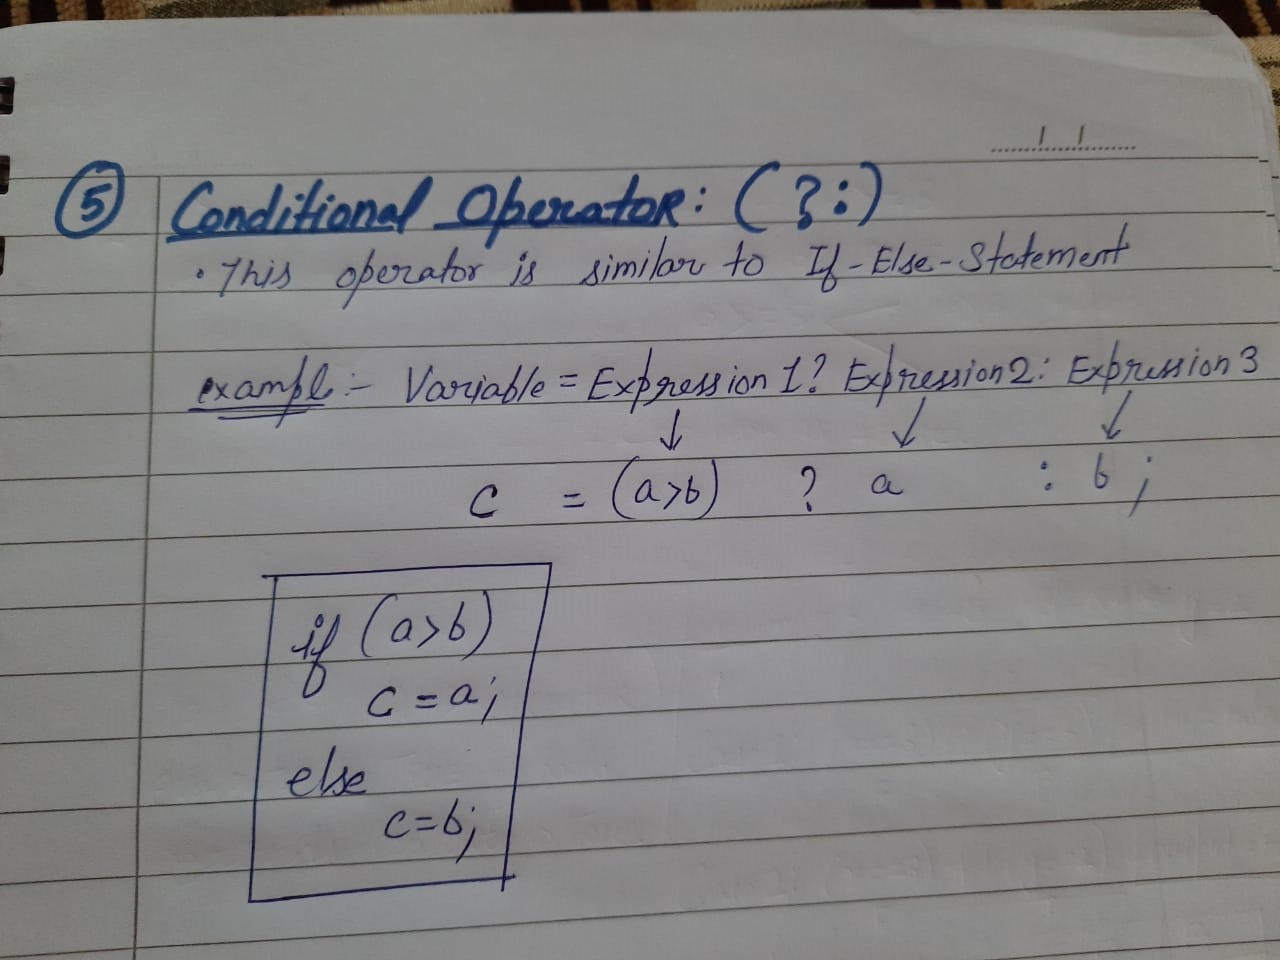 5 Conditional Operator: (?:)
• This operator is similar to If-Else-Statement
example:- Variable = Expression 1? Expression2: Expression 3
↓ ↓ ↓
c = (a>b) ? a : b ;
if (a>b)
c = a;
else
c=b;